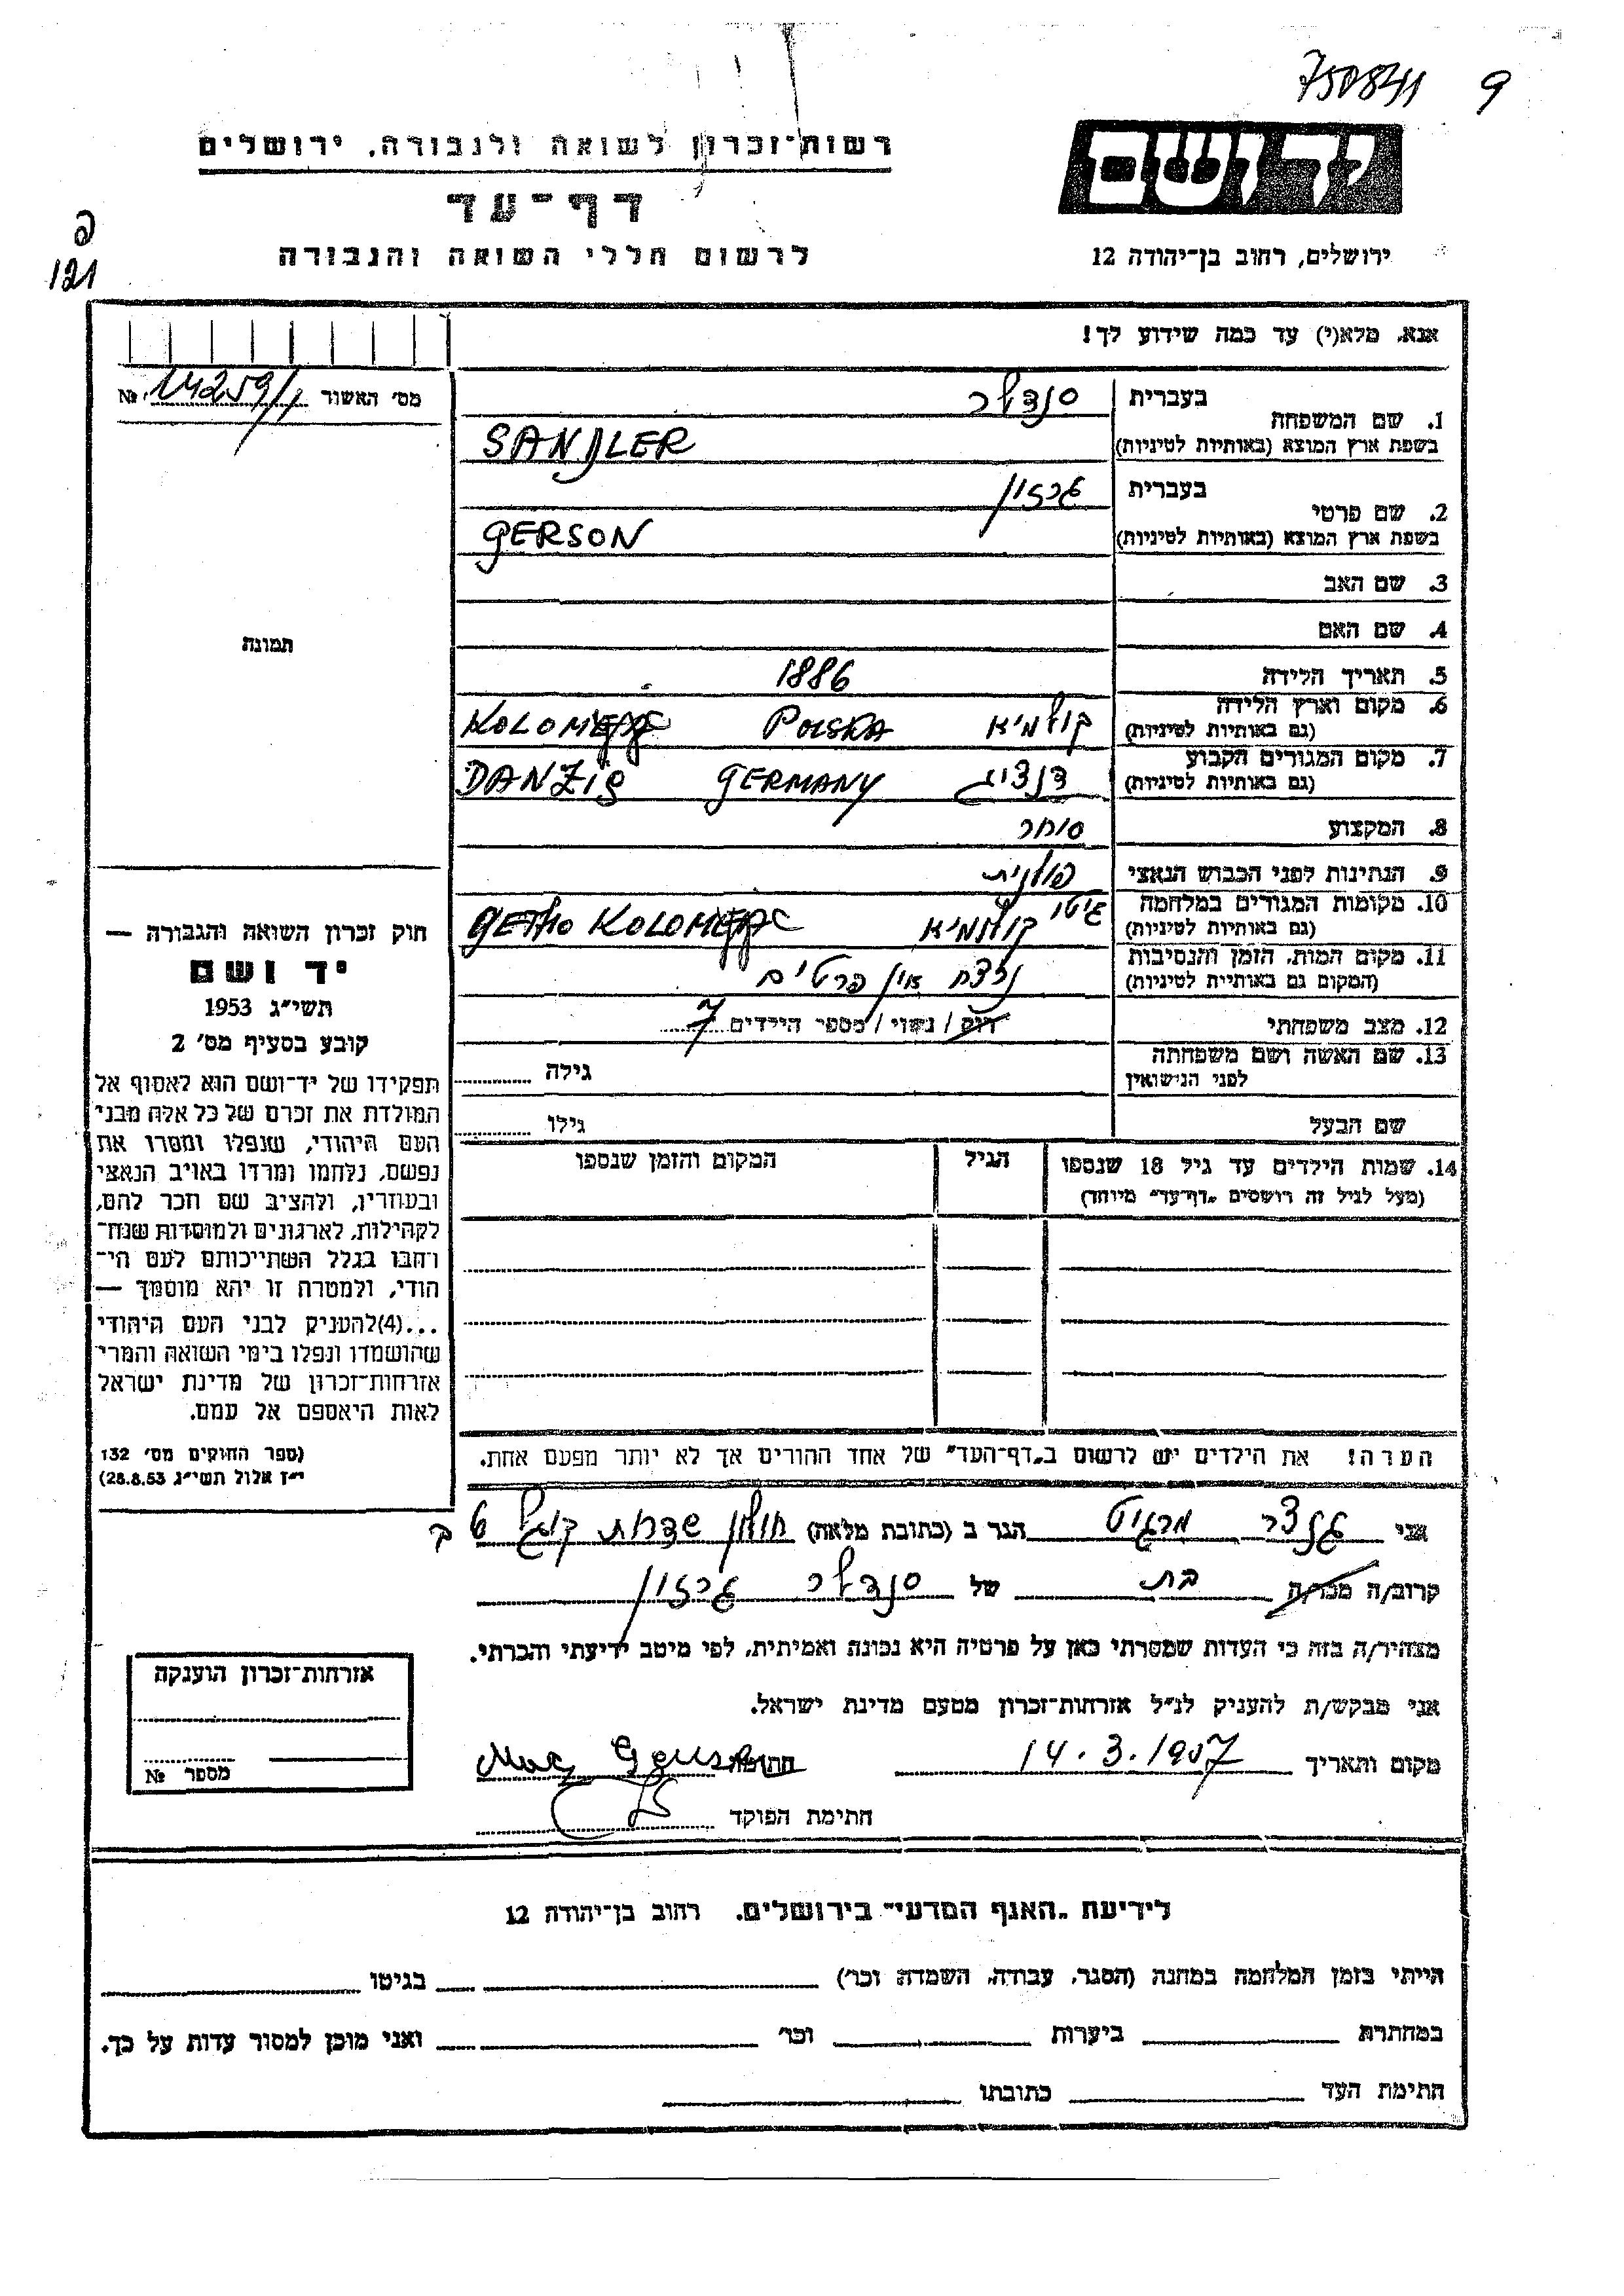 750841 9
יד ושם
רשות-זכרון לשואה ולגבורה, ירושלים
דף-עד
לרשום חללי השואה והגבורה
ירושלים, רחוב בן-יהודה 12
121
אנא, מלא(י) עד כמה שידוע לך!
מס׳ האשור 14259/1 №
תמונה
1. שם המשפחה בעברית סנדלר
בשפת ארץ המוצא (באותיות לטיניות) SANDLER
2. שם פרטי בעברית גרזון
בשפת ארץ המוצא (באותיות לטיניות) GERSON
3. שם האב
4. שם האם
5. תאריך הלידה 1886
6. מקום וארץ הלידה קולומיא POLSKA
(גם באותיות לטיניות)
7. מקום המגורים הקבוע דנציג GERMANY DANZIG
(גם באותיות לטיניות)
8. המקצוע סוחר
9. הנתינות לפני הכבוש הנאצי פולנית
10. מקומות המגורים במלחמה גיטו קולומיא GETHO
(גם באותיות לטיניות)
11. מקום המות, הזמן והנסיבות נרצח אין פרטים
(המקום גם באותיית לטיניות)
12. מצב משפחתי רוק / נשוי / מספר הילדים 7
13. שם האשה ושם משפחתה גילה
לפני הנישואין
שם הבעל גילו
14. שמות הילדים עד גיל 18 שנספו הגיל המקום והזמן שנספו
(מעל לגיל זה רושמים „דף-עד״ מיוחד)
הערה! את הילדים יש לרשום ב„דף-העד״ של אחד ההורים אך לא יותר מפעם אחת.
חוק זכרון השואה והגבורה —
יד ושם
תשי״ג 1953
קובע בסעיף מס׳ 2
תפקידו של יד-ושם הוא לאסוף אל
המולדת את זכרם של כל אלה מבני
העם היהודי, שנפלו ומסרו את
נפשם, נלחמו ומרדו באויב הנאצי
ובעוזריו, ולהציב שם וזכר להם,
לקהילות, לארגונים ולמוסדות שנח-
רחבו בגלל השתייכותם לעם הי-
הודי, ולמטרת זו יהא מוסמך —
...(4)להעניק לבני העם היהודי
שהושמדו ונפלו בימי השואה והמרי
אזרחות-זכרון של מדינת ישראל
לאות היאספם אל עמם.
(ספר החוקים מס׳ 132
י״ז אלול תשי״ג 28.8.53)
אני גלצר מרגיט הגר ב (כתובת מלאה) חולון שדרות קוגל 6 ב
קרוב/ה מכר/ה בת של סנדלר גרזון
מצהיר/ה בזה כי העדות שמסרתי כאן על פרטיה היא נכונה ואמיתית, לפי מיטב ידיעתי והכרתי.
אני מבקש/ת להעניק לנ״ל אזרחות-זכרון מטעם מדינת ישראל.
מקום ותאריך 14.3.1957 חתימה
חתימת הפוקד
אזרחות-זכרון הוענקה
מספר №
לידיעת „האגף המדעי״ בירושלים, רחוב בן-יהודה 12
הייתי בזמן המלחמה במחנה (הסגר, עבודה, השמדה וכר׳) בגיטו
במחתרת ביערות וכר׳ ואני מוכן למסור עדות על כך.
חתימת העד כתובתו